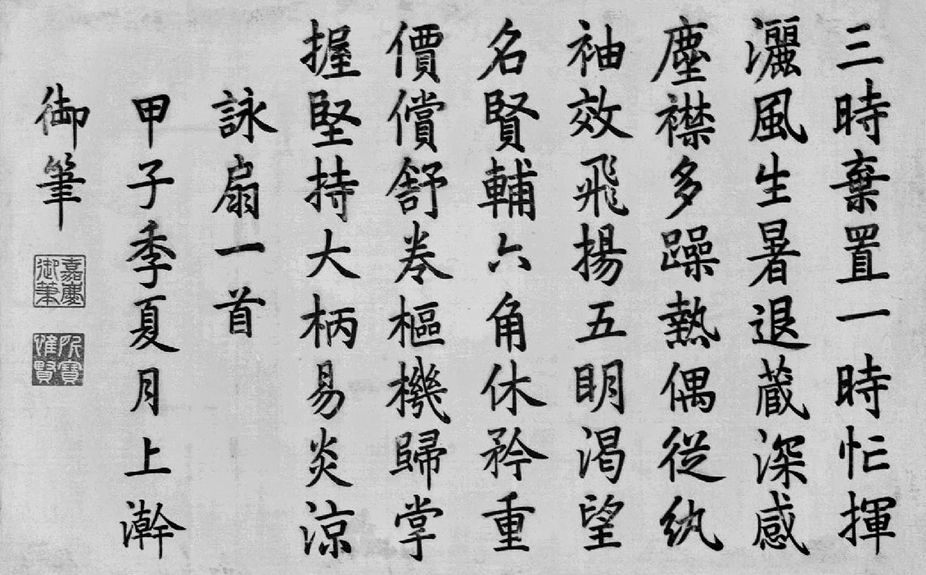 三時棄置一時忙揮
灑風生暑退藏深感
塵襟多躁熱偶從紈
袖效飛揚五明渴望
名賢輔六角休矜重
價償舒卷樞機歸掌
握堅持大柄易炎涼
詠扇一首
甲子季夏月上澣
御筆
嘉慶御筆
所寶惟賢